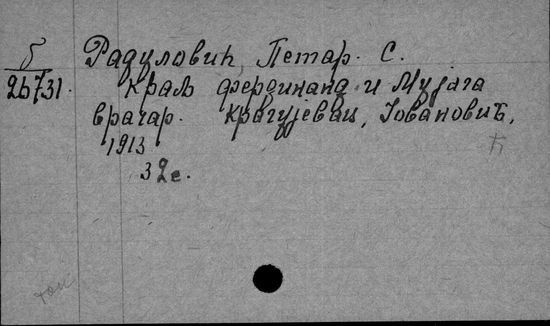 б Радуловић, Петар. С.
26731. Краљ Фердинанд и Мујага
врачар. Крагујевац, Јовановић,
1913
ћ
32с.